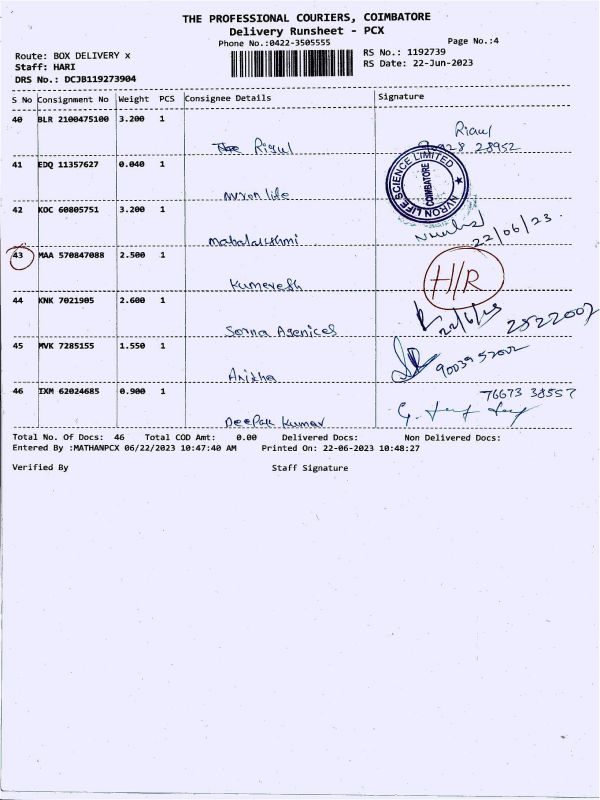 THE PROFESSIONAL COURIERS, COIMBATORE
Delivery Runsheet - PCX
Phone No.:0422-3505555 Page No.:4
Route: BOX DELIVERY x RS No.: 1192739
Staff: HARI RS Date: 22-Jun-2023
DRS No.: DCJB119273904
S No Consignment No Weight PCS Consignee Details Signature
40 BLR 2100475100 3.200 1
Rigul
28952
41 EDQ 11357627 0.040 1
NVRON LIFE SCIENCE LIMITED
COIMBATORE
Nvron life
42 KOC 60805751 3.200 1
Mahalakshmi 22/06/23.
43 MAA 570847088 2.500 1 H/R
Kumaresh
44 KNK 7021905 2.600 1 22/6/23 2522007
Sorna Agenices
45 MVK 7285155 1.550 1 9003952002
Anitha
46 IXM 62024685 0.900 1 76673 38557
Deepak Kumar
Total No. Of Docs: 46 Total COD Amt: 0.00 Delivered Docs: Non Delivered Docs:
Entered By :MATHANPCX 06/22/2023 10:47:40 AM Printed On: 22-06-2023 10:48:27
Verified By Staff Signature